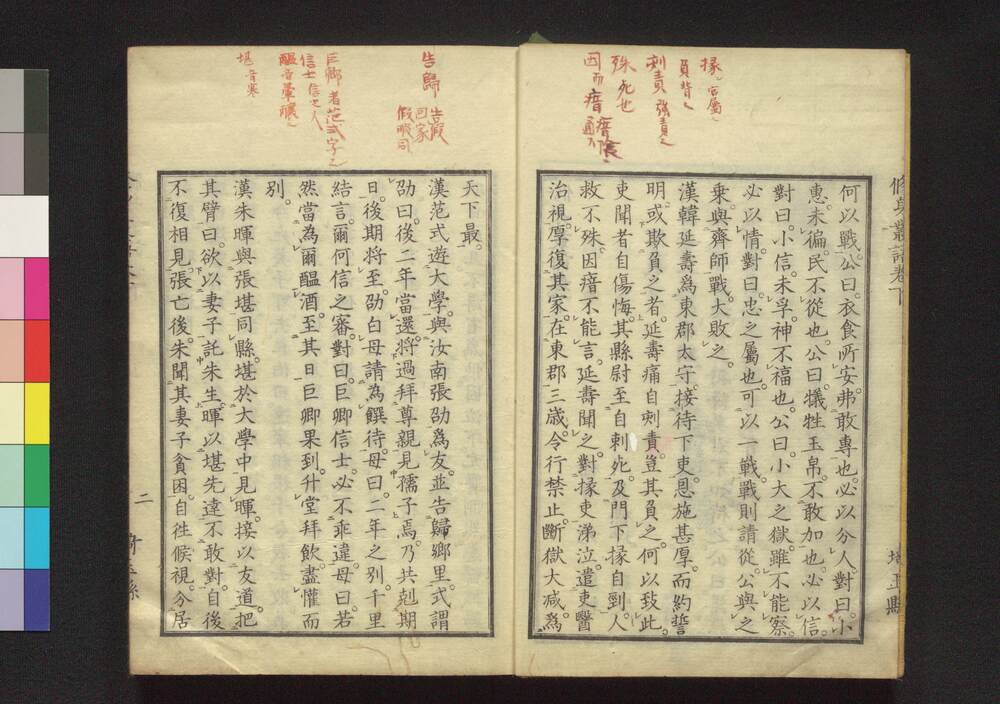 掾官屬也
負背也
刺責強責也
殊死也
因而瘖瘖瘂通
何以戰。公曰。衣食所安。弗敢專也。必以分人。對曰。小
惠未徧。民不從也。公曰。犧牲玉帛。不敢加也。必以信。
對曰。小信未孚。神不福也。公曰。小大之獄。雖不能察。
必以情。對曰。忠之屬也。可以一戰。戰則請從。公與之
乘。與齊師戰。大敗之。
漢韓延壽為東郡太守。接待下吏。恩施甚厚。而約誓
明。或欺負之者。延壽痛自刺責。豈其負之。何以致此。
吏聞者自傷悔。其縣尉至自刺死。及門下掾自剄。人
救不殊。因瘖不能言。延壽聞之。對掾吏涕泣。遣吏醫
治視。厚復其家。在東郡三歲。令行禁止。斷獄大減。為
修身叢語卷下
埼玉縣
告歸
告假
回家
假暇同
巨卿者范式字也
信士信之人
醞音醖釀也
堪音寒
天下最。
漢范式遊大學。與汝南張劭為友。並告歸鄉里。式謂
劭曰。後二年當還。將過拜尊親。見孺子焉。乃共剋期
日。後期將至。劭白母。請為饌待。母曰。二年之別。千里
結言。爾何信之審。對曰。巨卿信士。必不乖違。母曰。若
然當為爾醞酒。至其日。巨卿果到。升堂拜飲。盡懽而
別。
漢朱暉與張堪同縣。堪於大學中見暉。接以友道。把
其臂曰。欲以妻子託朱生。暉以堪先達。不敢對。自後
不復相見。張亡後。朱聞其妻子貧困。自往候視。分居
二